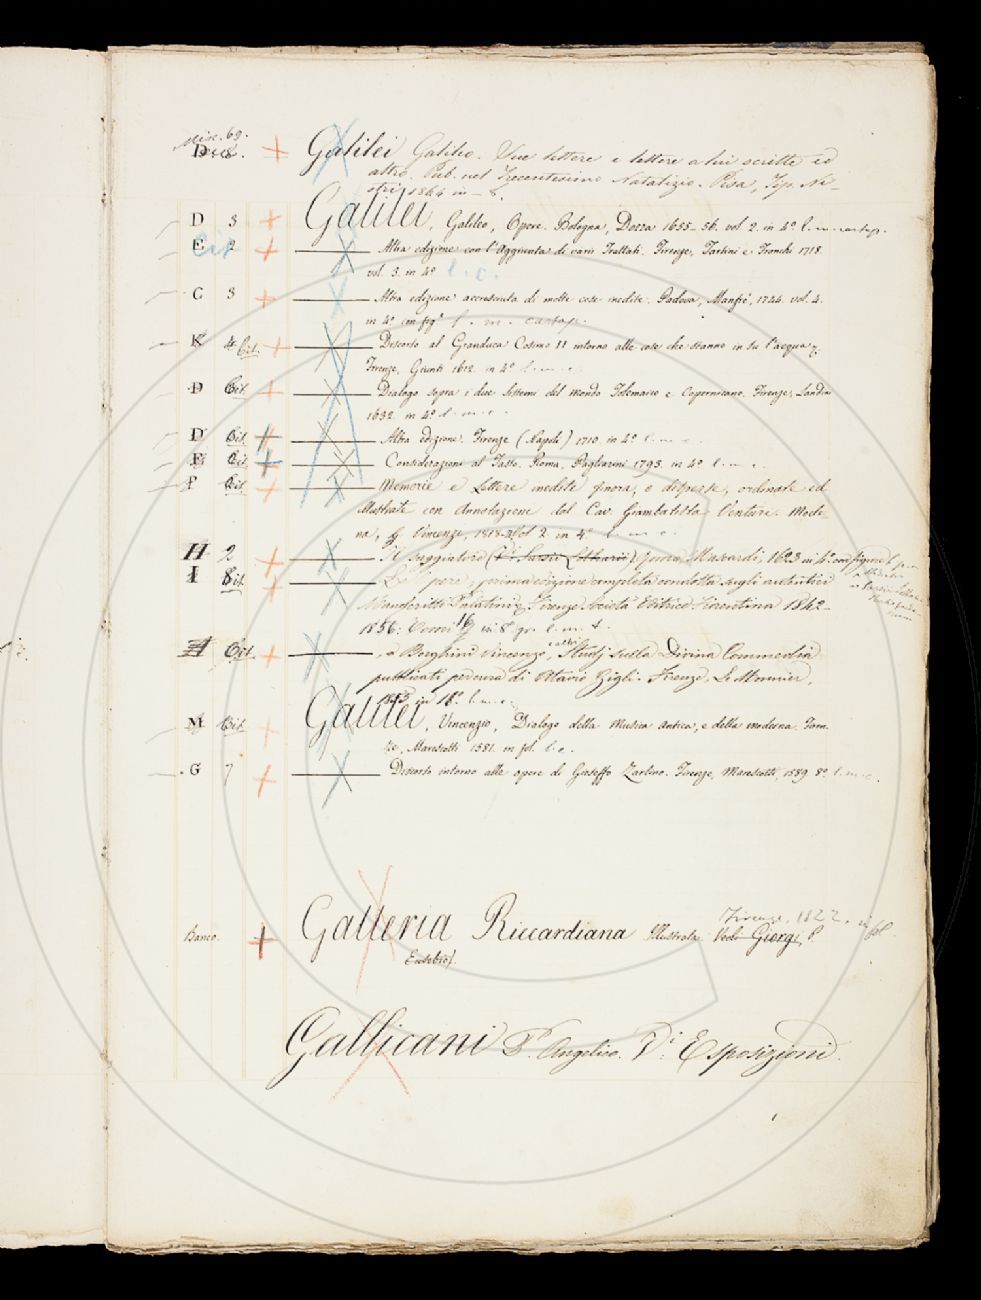 Misc. 69.
D 8. Galilei Galileo. Due lettere e lettere a lui scritte ed
altro. Pub. nel Trecentesimo Natalizio. Pisa, Tip. Ni-
stri, 1864 in-8.
D 3 Galilei, Galileo, Opere. Bologna, Dozza 1655-56. vol. 2. in 4° l. m. cartap.
E 2 Altra edizione con l'Aggiunta di varii Trattati. Firenze, Tartini e Franchi 1718.
Cit
vol. 3. in 4° l. c.
C 3 Altra edizione accresciuta di molte cose inedite. Padova, Manfrè, 1744. vol. 4.
in 4° con fig.e l. m. cartap.
K 4 Cit. Discorso al Granduca Cosimo II intorno alle cose che stanno in su l'acqua &.
Firenze, Giunti 1612. in 4° l. m. c.
D Cit. Dialogo sopra i due Sistemi del Mondo Tolemaico e Copernicano. Firenze, Landini
1632. in 4° l. m. c.
D Cit. Altra edizione. Firenze (Napoli) 1710. in 4° l. m. c.
E Cit. Considerazioni al Tasso. Roma, Pagliarini 1793. in 4° l. m. c.
F Cit. Memorie e Lettere inedite finora, o disperse, ordinate ed
illustrate con Annotazione dal Cav. Giambatista Venturi. Mode-
na, G. Vincenzi, 1818-21 Vol 2. in 4° l. m. c.
H 2 Il Saggiatore (Di Sarsii Lothario) Roma, Mascardi, 1623 in 4° con figure l.
I 8 Cit. Le Opere; prima edizione completa condotta sugli autentici
Manoscritti Palatini &. Firenze Società Editrice Fiorentina 1842-
1856: Tomi 16 in 8° gr. l. m. t.
Cit. e Borghini Vincenzo, e altri Studj sulla Divina Commedia
pubblicati per cura di Ottavio Gigli. Firenze. Le Monnier,
1855 in 16° l. m. c.
M Cit. Galilei, Vincenzio, Dialogo della Musica antica, e della moderna. Firen-
ze, Marescotti 1581. in fol. l. c.
G 7 Discorso intorno alle opere di Gioseffo Zarlino. Firenze, Marescotti, 1589 8° l. m. c.
Firenze, 1822. in fol.
Banco. Galleria Riccardiana Illustrata. Vedi Giorgi, P.
Eusebio.
Gallicani P. Angelico. V: Esposizioni.